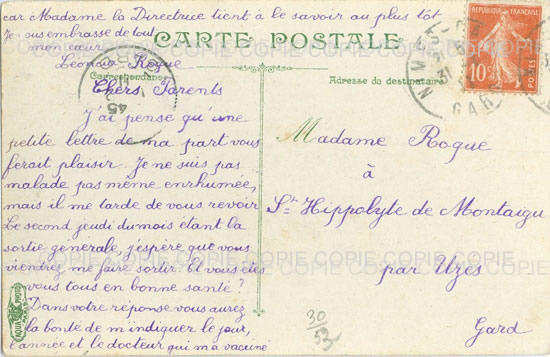 car Madame la Directrice tient à le savoir au plus tôt
Je vous embrasse de tout
mon cœur
Léoncia Roque
CARTE POSTALE
Correspondance
Adresse du destinataire
RÉPUBLIQUE FRANÇAISE
10c
POSTES
NIMES
GARD
Chers Parents
J'ai pensé qu'une
petite lettre de ma part vous
ferait plaisir. Je ne suis pas
malade pas même enrhumée,
mais il me tarde de vous revoir
Le second jeudi du mois étant la
sortie générale, j'espère que vous
viendrez me faire sortir. Et vous êtes
vous tous en bonne santé?
Dans votre réponse vous aurez
la bonté de m'indiquer le jour,
l'année et le docteur qui m'a vacciné
Madame Roque
à
St Hippolyte de Montaigu
par Uzès
Gard
30/53
COPIE COPIE COPIE COPIE COPIE